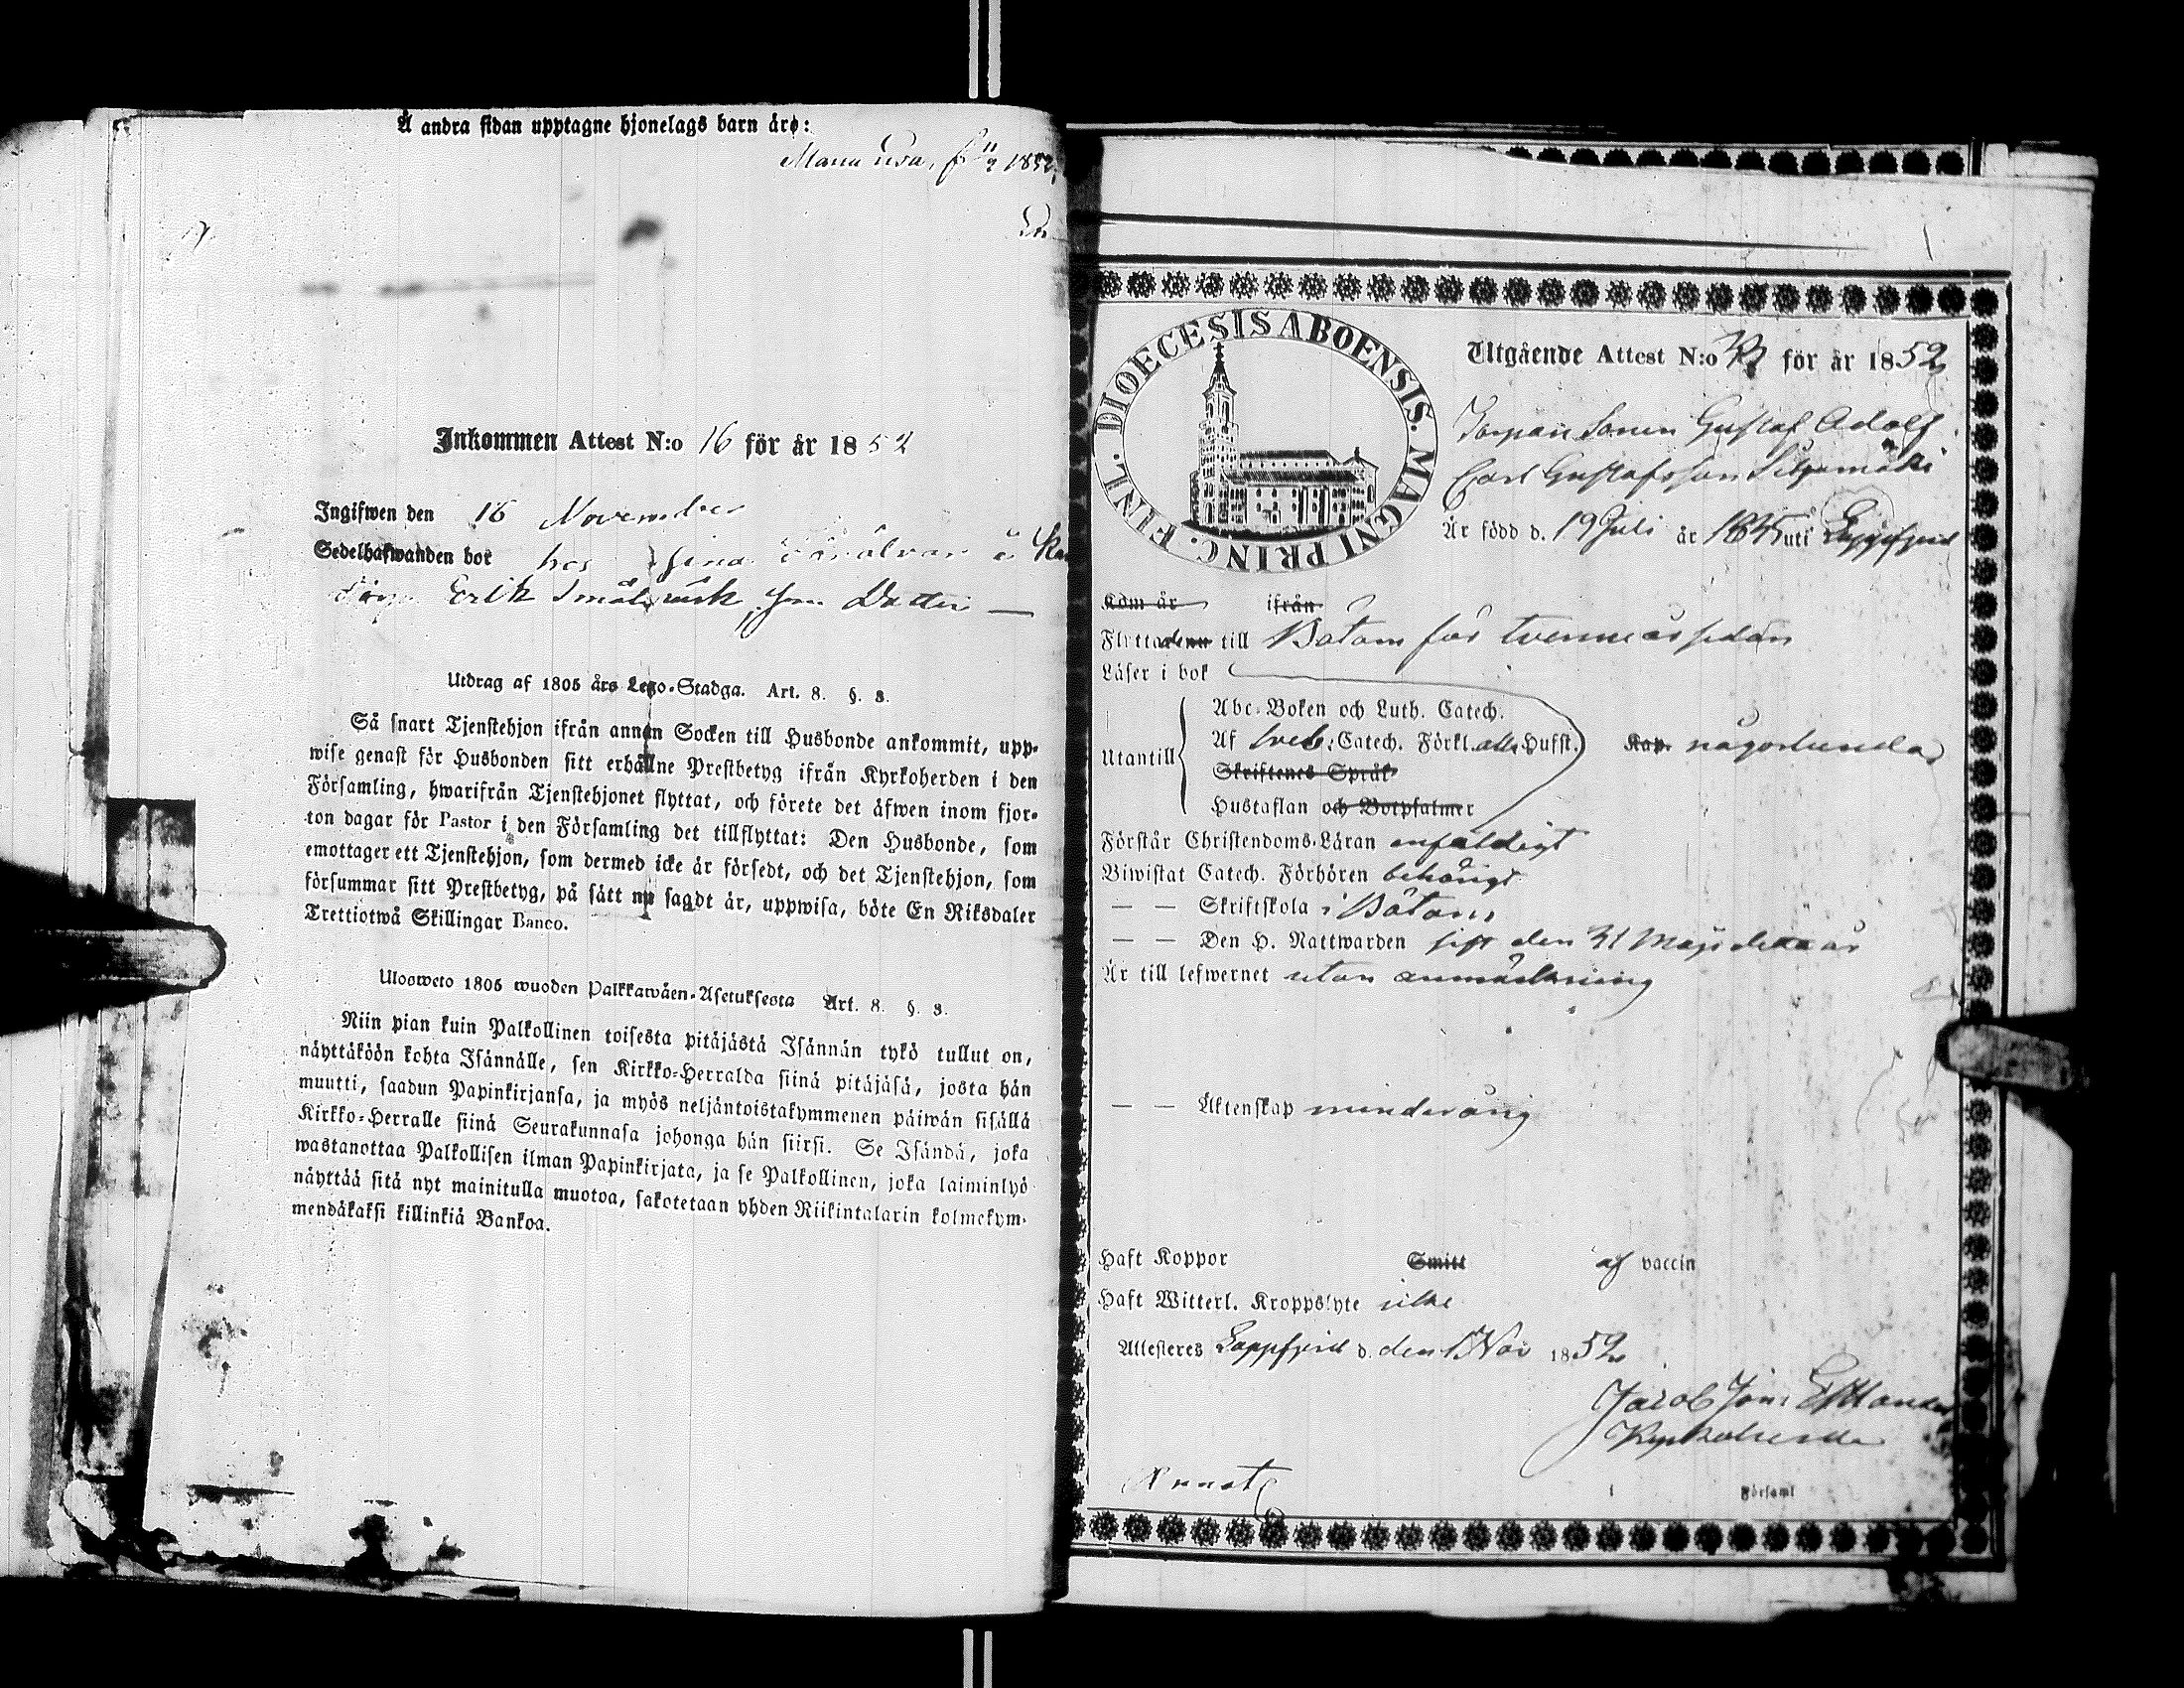 Å andra sidan upptagne hjonelags barn äro:
Maria Lisa, f. 11/2 1852,
Inkommen Attest N:o 16 för år 1852
Ingifwen den 16 November
Sedelhafwanden bor hos sina föräldrar å
Erik Småbäck, som Dotter —
Utdrag af 1805 års Lego-Stadga. Art. 8. §. 3.
Så snart Tjenstehjon ifrån annan Socken till Husbonde ankommit, upp-
wise genast för Husbonden sitt erhållne Prestbetyg ifrån Kyrkoherden i den
Församling, hwarifrån Tjenstehjonet flyttat, och förete det äfwen inom fjor-
ton dagar för Pastor i den Församling det tillflyttat: Den Husbonde, som
emottager ett Tjenstehjon, som dermed icke är försedt, och det Tjenstehjon, som
försummar sitt Prestbetyg, på sätt nu sagdt är, uppwisa, böte En Riksdaler
Trettiotwå Skillingar Banco.
Ulosweto 1805 wuoden Palkkawäen-Asetuksesta Art. 8. §. 3.
Niin pian kuin Palkollinen toisesta pitäjästä Isännän tykö tullut on,
näyttäköön kohta Isännälle, sen Kirkko-Herralda siinä pitäjäsä, josta hän
muutti, saadun Papinkirjansa, ja myös neljäntoistakymmenen päiwän sisällä
Kirkko-Herralle siinä Seurakunnasa johonga hän siirsi. Se Isändä, joka
wastanottaa Palkollisen ilman Papinkirjata, ja se Palkollinen, joka laiminlyö
näyttää sitä nyt mainitulla muotoa, sakotetaan yhden Riikintalarin kolmekym-
mendäkaksi killinkiä Bankoa.
DIOECESIS ABOENSIS. MAGNI PRINC. FINL.
Utgående Attest N:o för år 1852
Torpare Sonen Gustaf Adolf
Carl Gustafsson
Är född d. 19 Juli år 1835 uti Lappfjerd
Kom år ifrån
Flyttade till Bötom för tvenne år sedan
Läser i bok
Abc-Boken och Luth. Catech.
Utantill Af Sveb. Catech. Förkl. alla Hufst. Kap. någorlunda
Skriftenes Språk
Hustaflan och Botpsalmer
Förstår Christendoms-Läran enfaldigt
Biwistat Catech. Förhören behörigt
— — Skriftskola i Bötom
— — Den H. Nattwarden sist den 31 Maji detta år
Är till lefwernet utan anmärkning
— — Äktenskap minderårig
Haft Koppor Smitt af vaccin
Haft Witterl. Kroppslyte icke
Attesteras Lappfjerd d. den 15 Nov 1852
Jacob Jon: Estlander
Kyrkoherde
i Församl